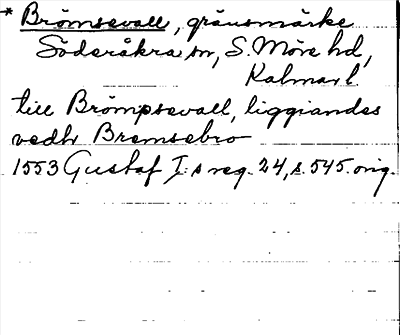 * Brömsevall, gränsmärke
Söderåkra sn, S. Möre hd,
Kalmar l.
till Brömpsevall, liggiandes
vedh Bremsebro
1553 Gustaf I:s reg. 24, s. 545. orig.